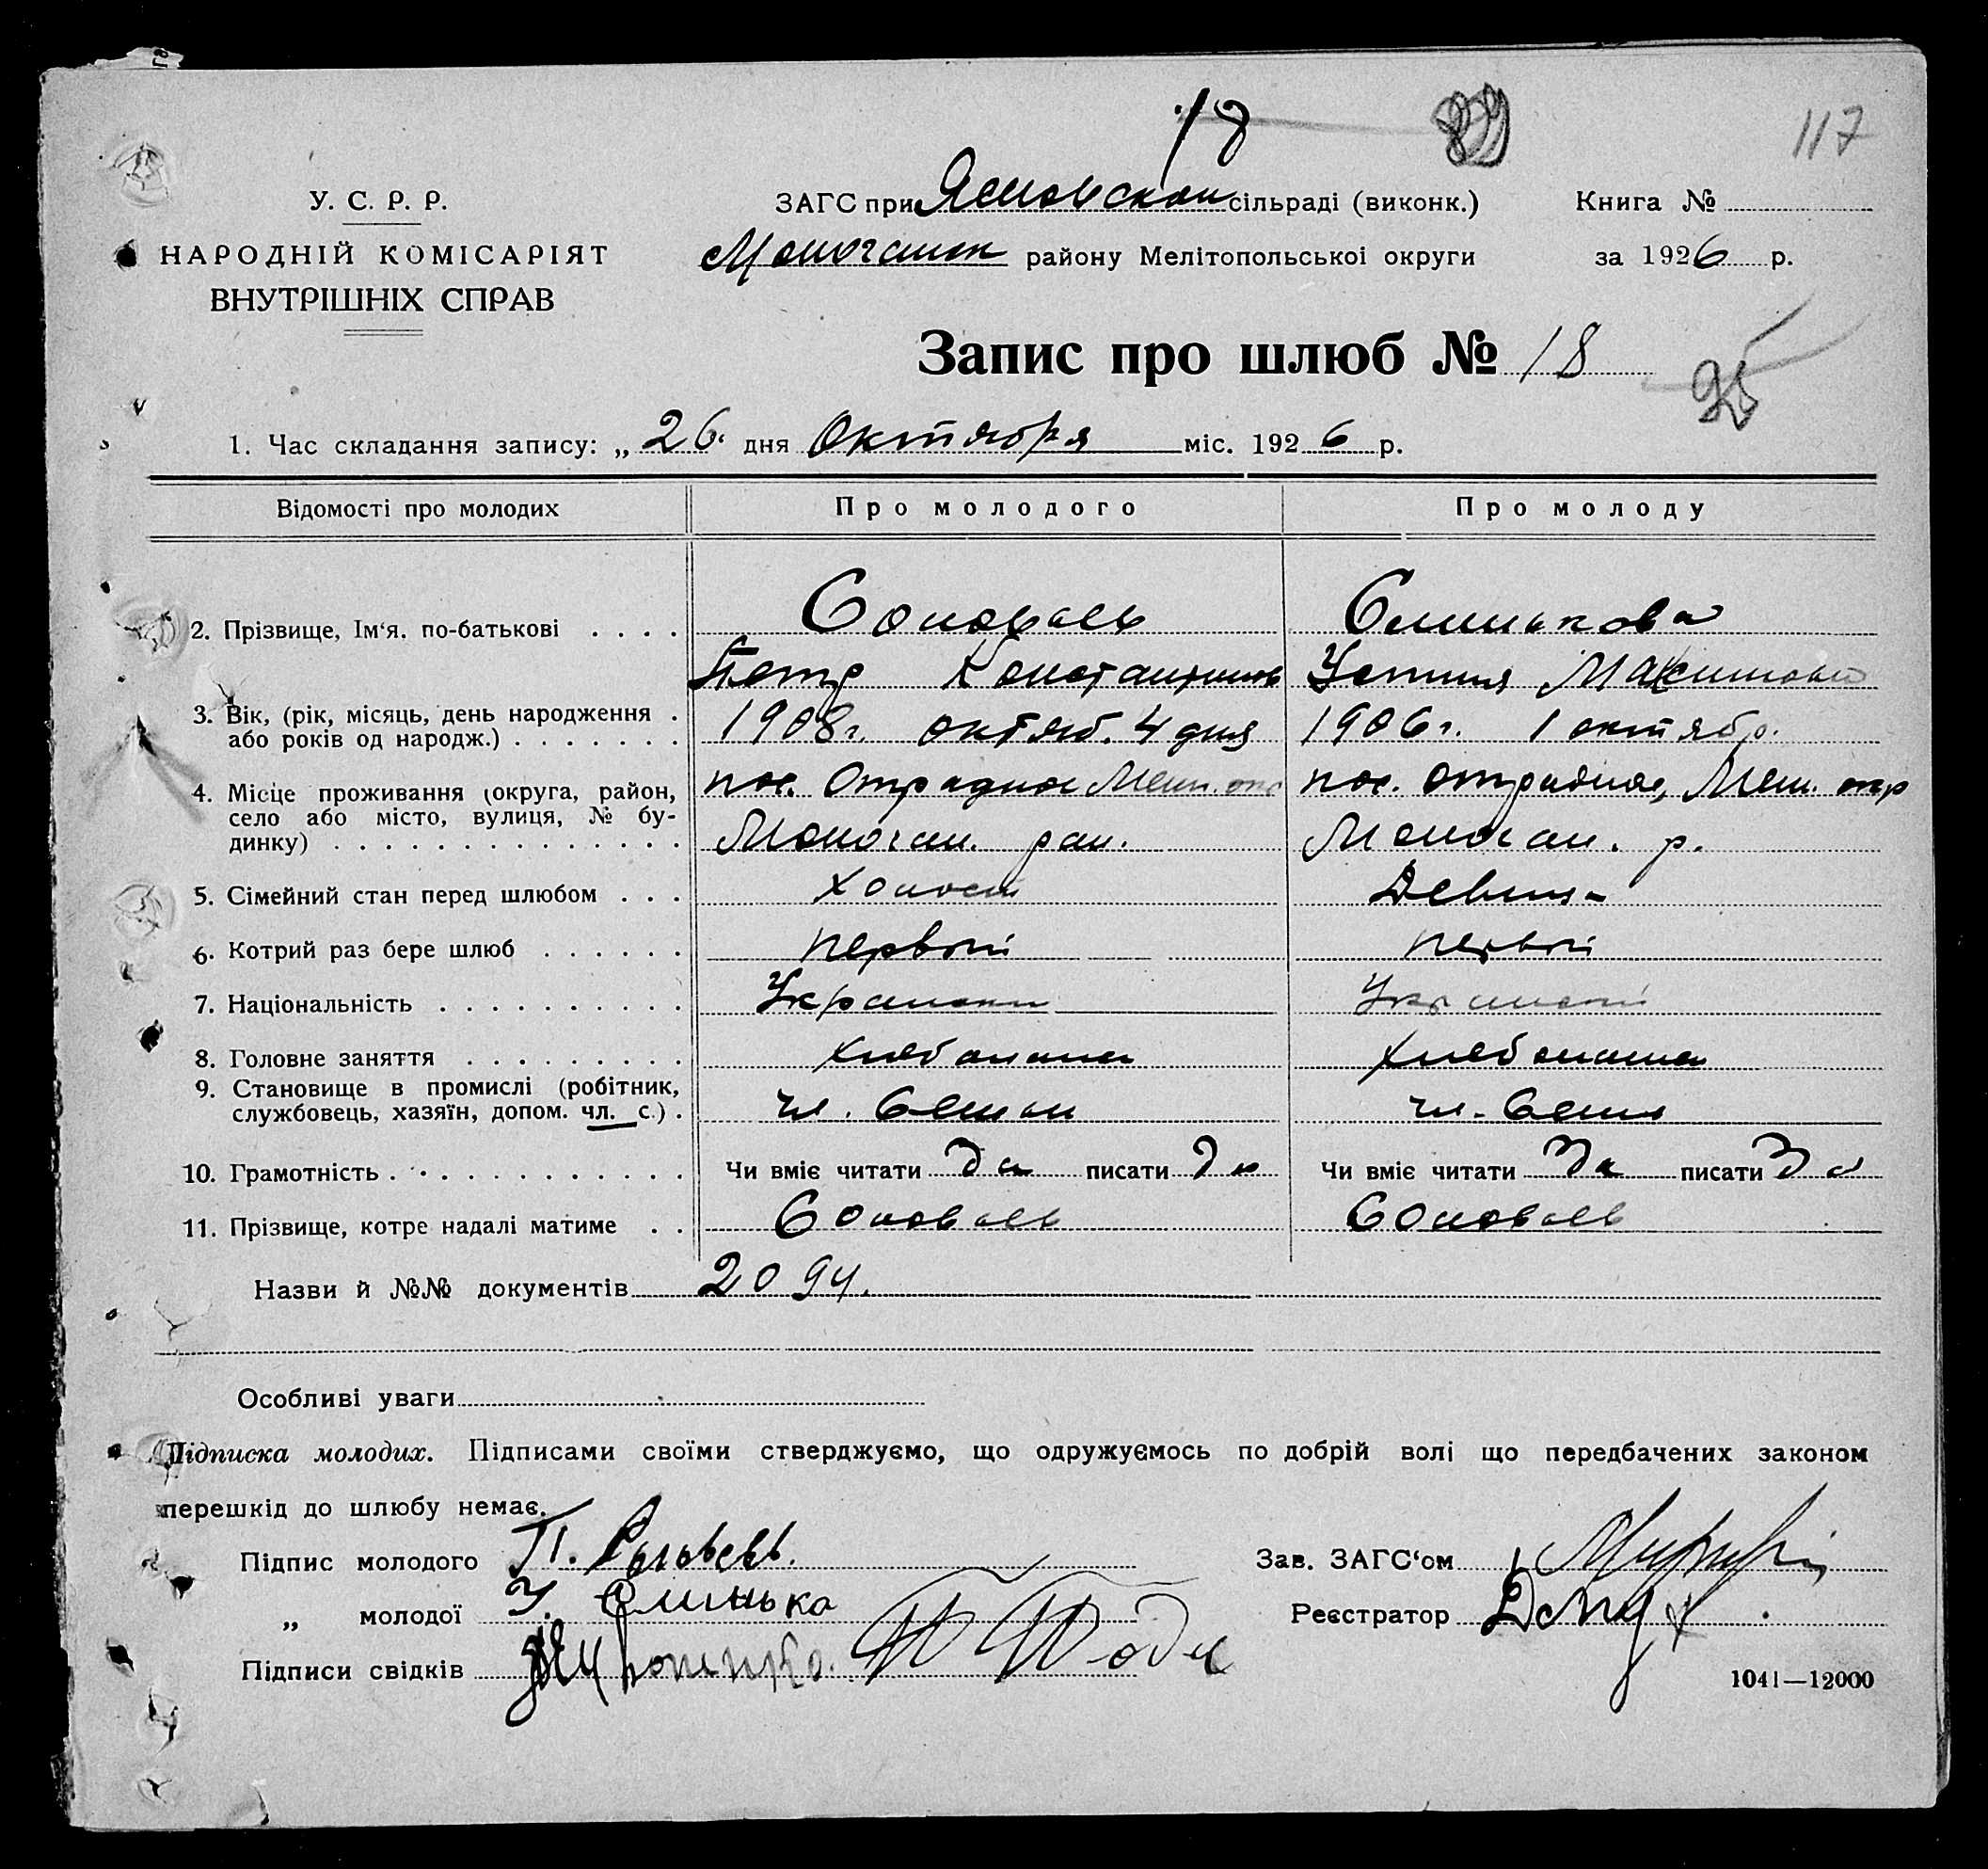 18
117
У. С. Р. Р.
НАРОДНІЙ КОМІСАРІЯТ
ВНУТРІШНІХ СПРАВ
ЗАГС при сільраді (виконк.)
району Мелітопольської округи
Книга №
за 1926 р.
Запис про шлюб № 18
1. Час складання запису: „ 26 дня Октября міс. 1926 р.
Відомості про молодих Про молодого Про молоду
2. Прізвище, Ім‘я. по-батькові . . . . Соловьев
Петр Константинов Устиния Максимовн
3. Вік, (рік, місяць, день народження .
або років од народж.) . . . . . . . 1908г. октяб. 4 дня 1906г. 1 октябр.
4. Місце проживання (округа, район,
село або місто, вулиця, № бу-
динку) . . . . . . . . . . . . . . .
пос. Отрадное Мели. окр пос. Отрадное, Мели. окр
рай. р.
5. Сімейний стан перед шлюбом . . . Холост Девица
6. Котрий раз бере шлюб . . . . . . первый первый
7. Національність . . . . . . . . . .
8. Головне заняття . . . . . . . . .
9. Становище в промислі (робітник,
службовець, хазяїн, допом. чл. с.) . чл. Семьи чл. Семьи
10. Грамотність . . . . . . . . . . . . Чи вміє читати да писати да Чи вміє читати да писати да
11. Прізвище, котре надалі матиме . . Соловьев Соловьев
Назви й №№ документів 2094.
Особливі уваги
Підписка молодих. Підписами своїми стверджуємо, що одружуємось по добрій волі що передбачених законом
перешкід до шлюбу немає.
Підпис молодого П. Соловьевъ.
„ молодої У. Олинька
Підписи свідків
Зав. ЗАГС‘ом
Реєстратор
1041—12000